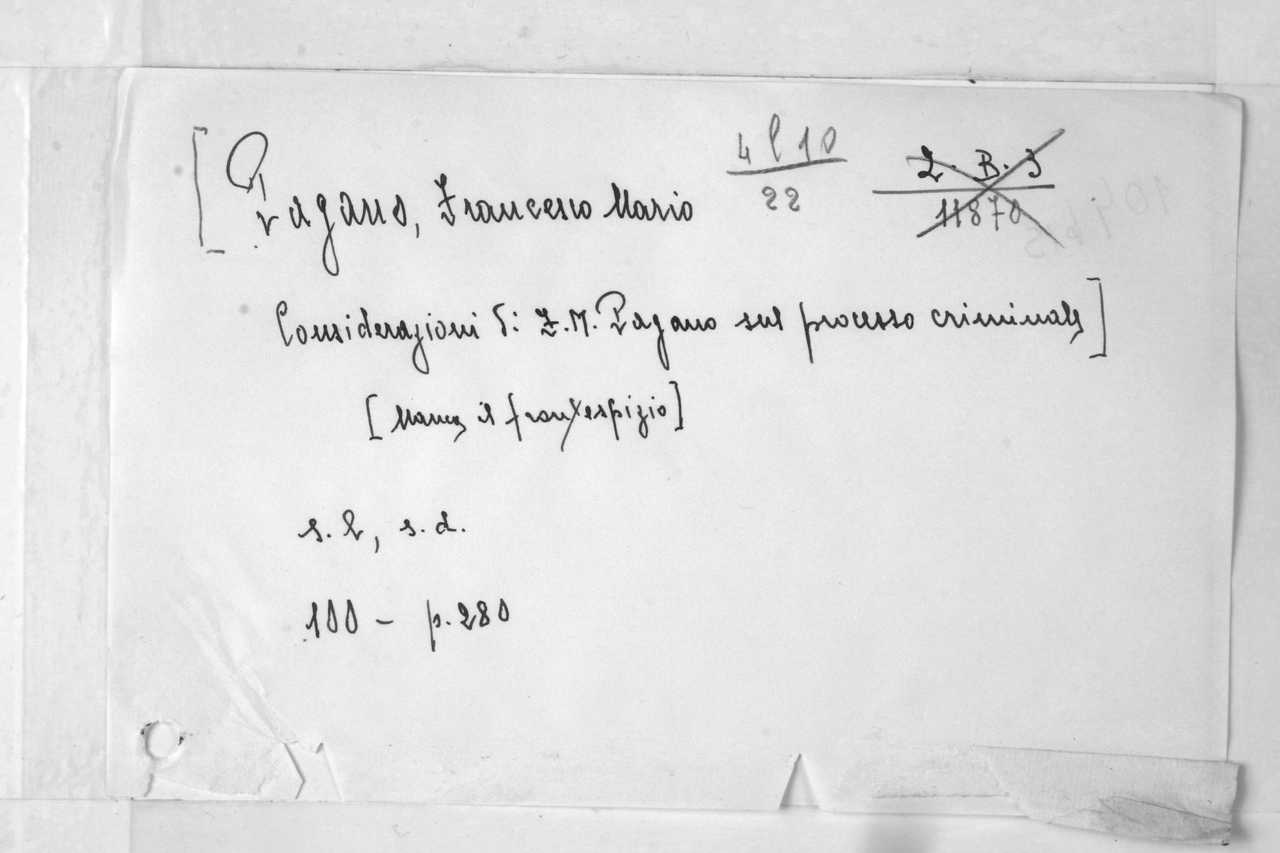 [Pagano, Francesco Mario
4 l 10
22
2. B. 3
11870
Considerazioni di F. M. Pagano sul processo criminale]
[Manca il frontespizio]
s. l., s. d.
100 - p. 280